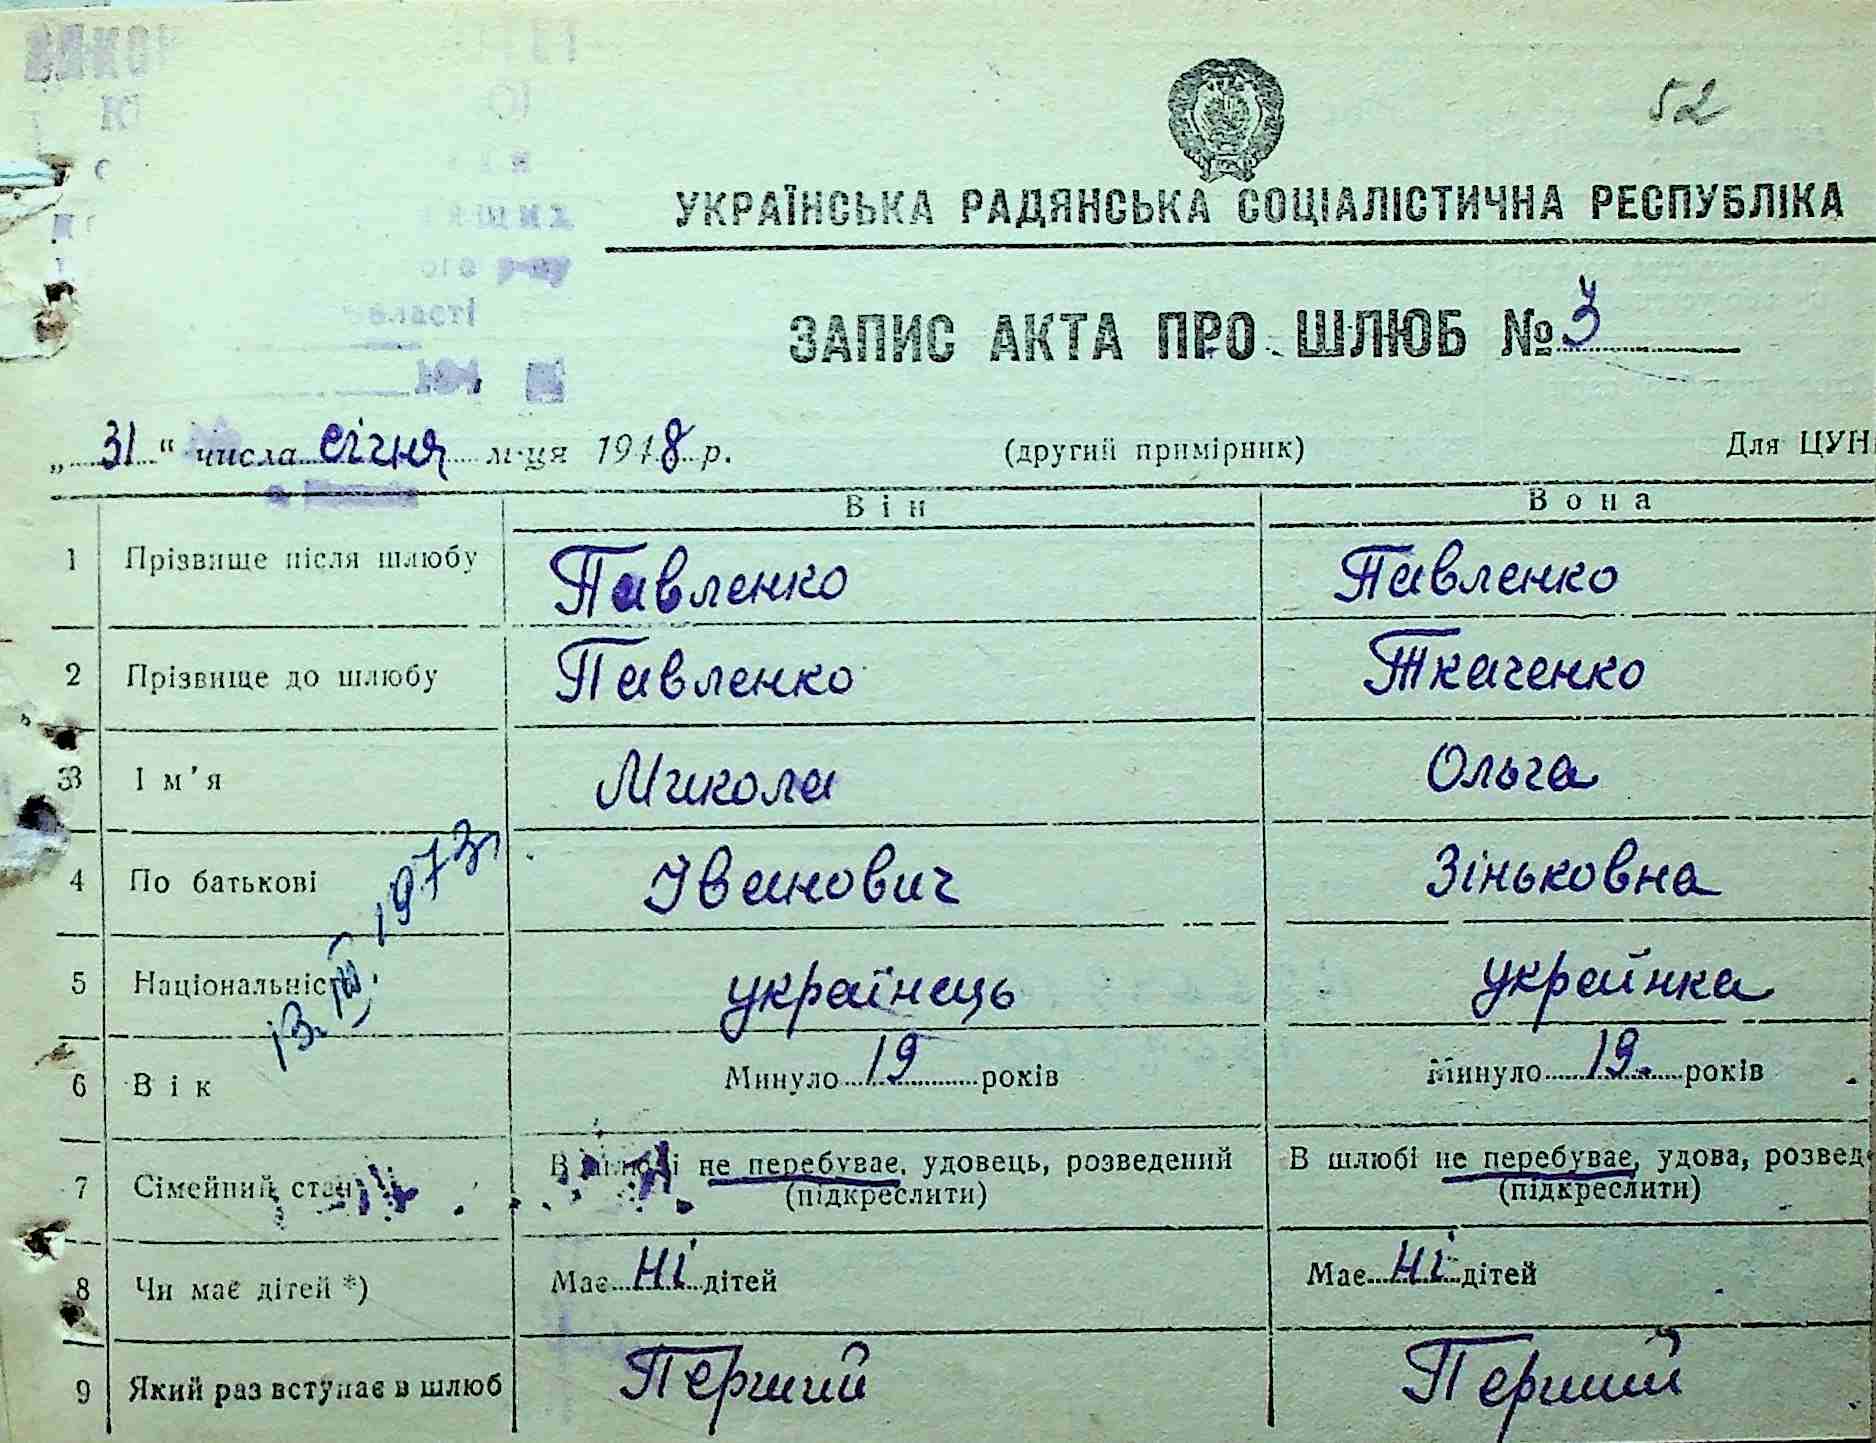 52
УКРАЇНСЬКА РАДЯНСЬКА СОЦІАЛІСТИЧНА РЕСПУБЛІКА
ЗАПИС АКТА ПРО ШЛЮБ № 3
„31“ числа січня м-ця 1948 р. (другий примірник) Для ЦУН
Він Вона
1 Прізвище після шлюбу Павленко Павленко
2 Прізвище до шлюбу Павленко Ткаченко
33 Ім’я Микола Ольга
4 По батькові Іванович Зіньковна
5 Національність українець українка
13.IV.1973
6 Вік Минуло 19 років Минуло 19. років
7 Сімейний стан В шлюбі не перебуває, удовець, розведений В шлюбі не перебуває, удова, розвед
(підкреслити) (підкреслити)
8 Чи має дітей *) Має ні дітей Має ні дітей
9 Який раз вступає в шлюб Перший Перший